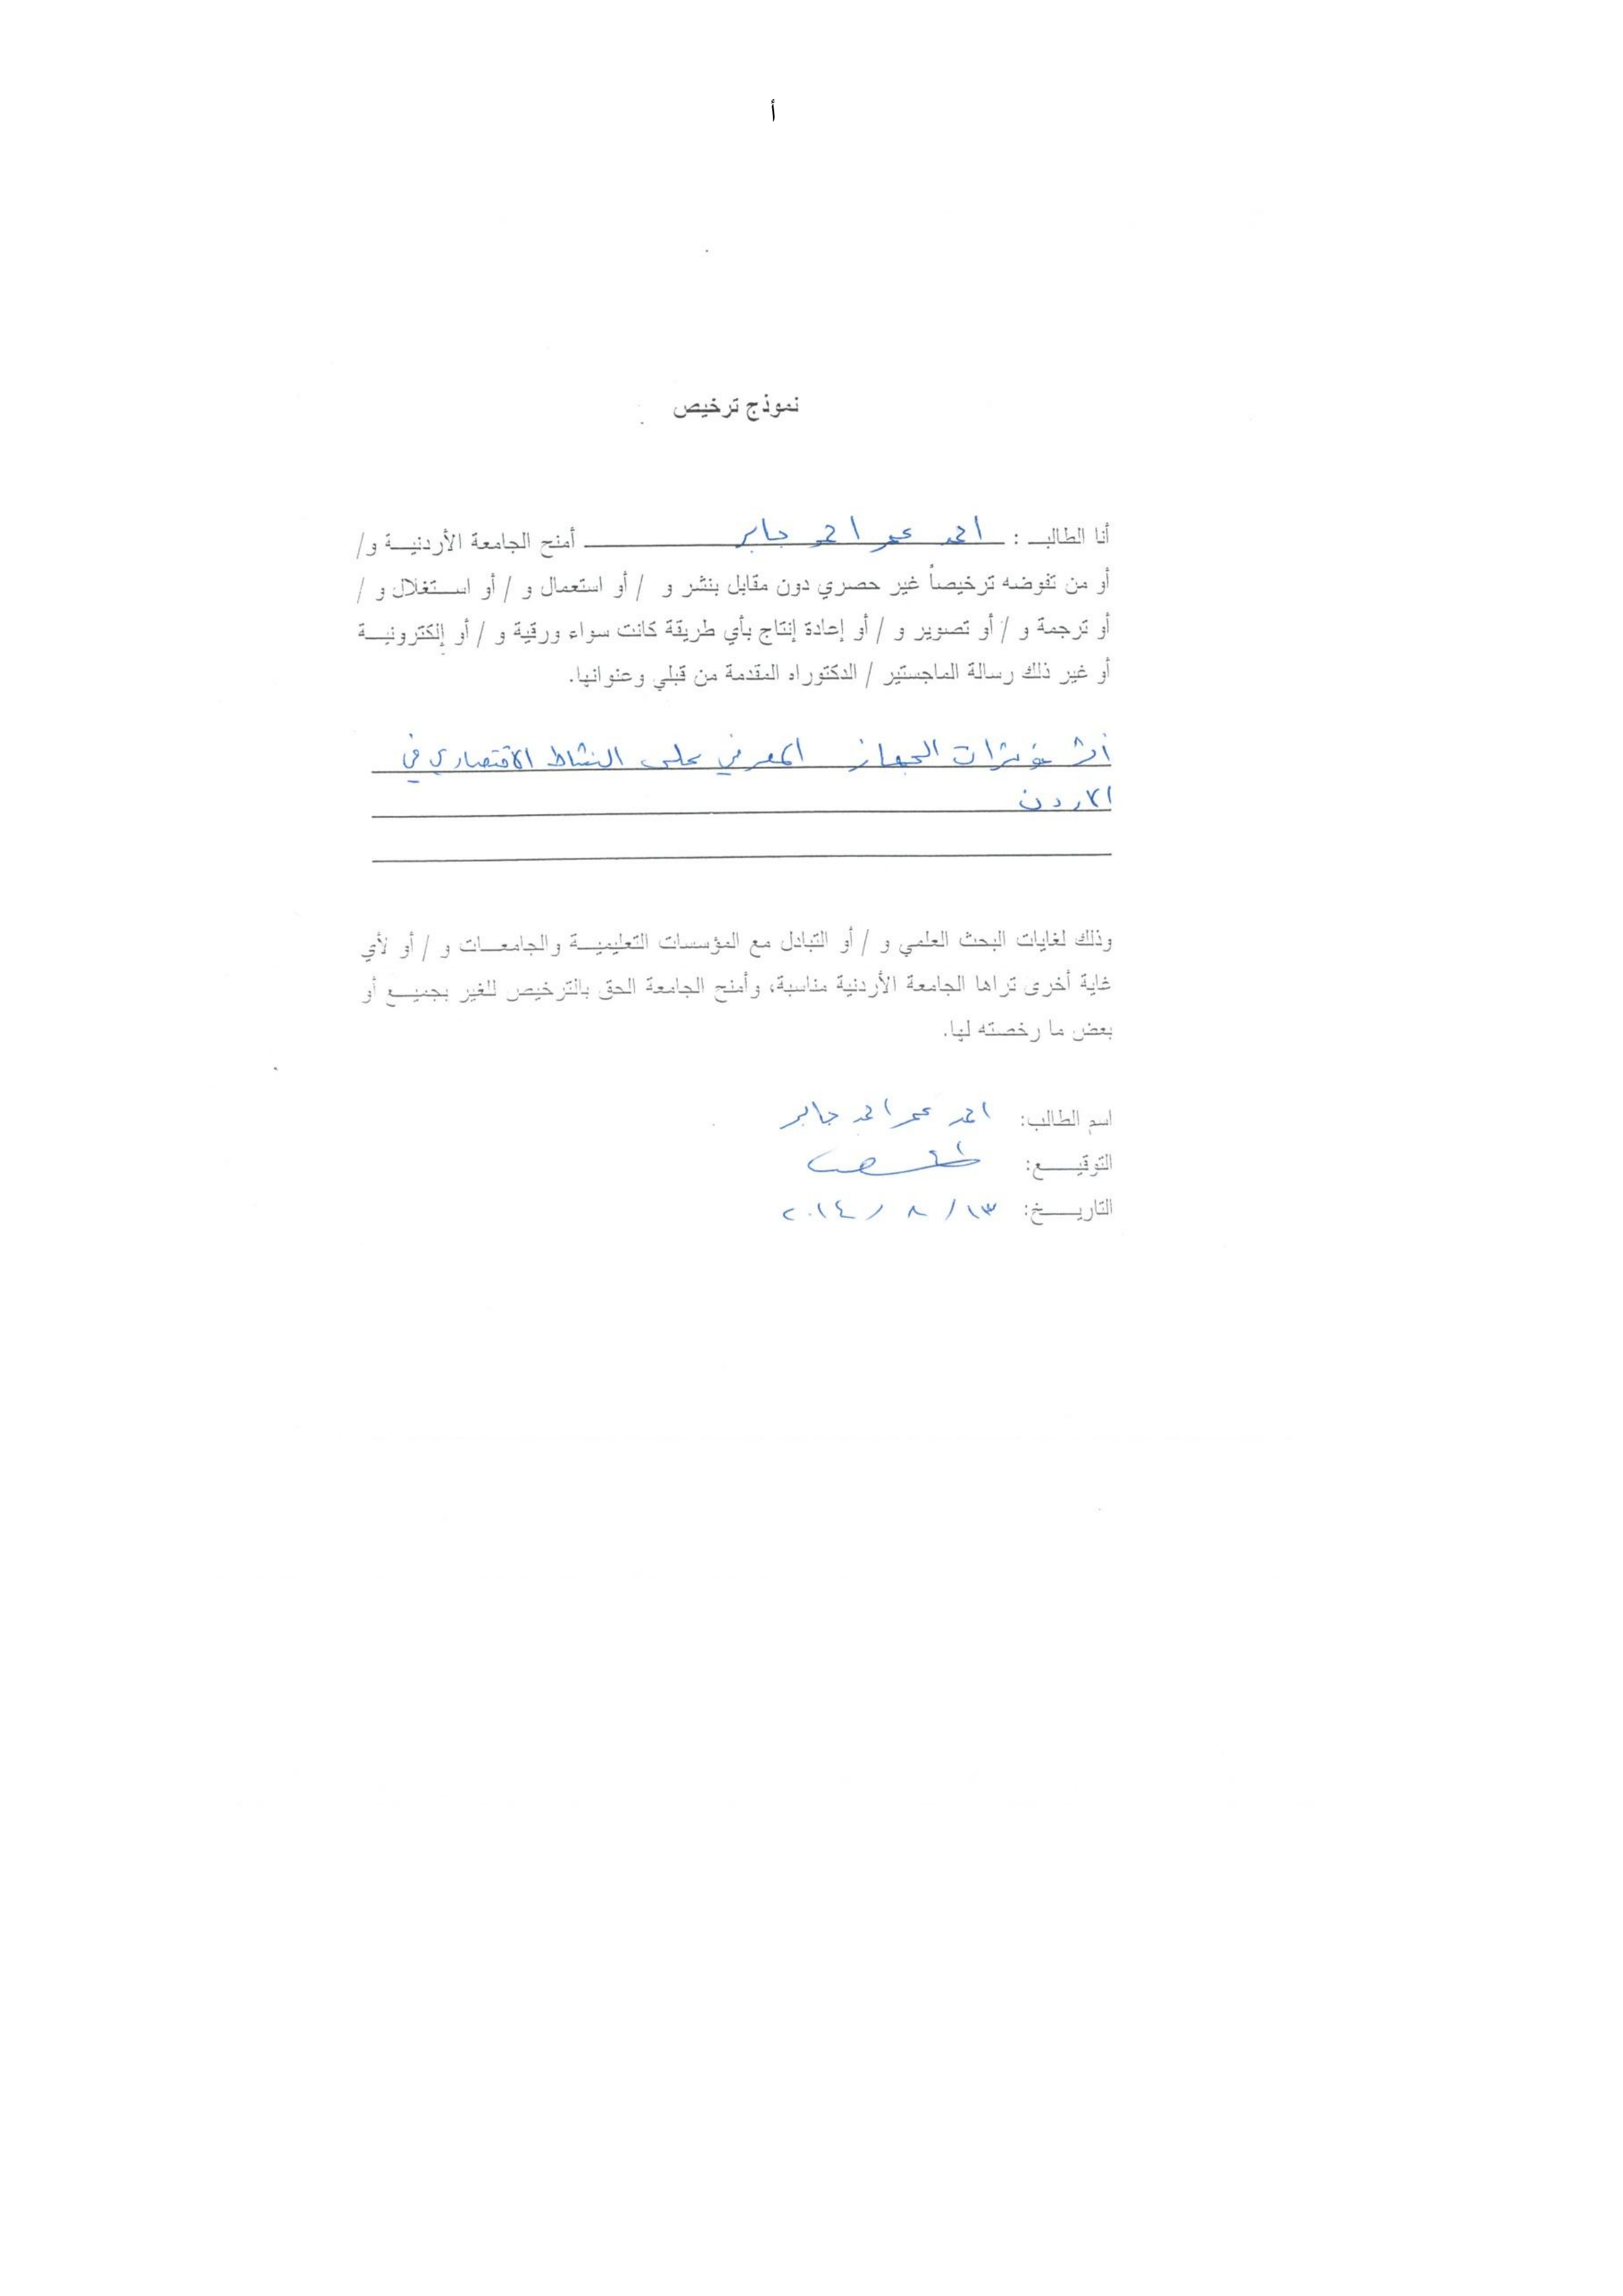 أ
نموذج ترخيص
أنا الطالب : احمد عمر احمد جابر أمنح الجامعة الأردنية و/
أو من تفوضه ترخيصاً غير حصري دون مقابل بنشر و / أو استعمال و / أو استغلال و /
أو ترجمة و / أو تصوير و / أو إعادة إنتاج بأي طريقة كانت سواء ورقية و / أو إلكترونية
أو غير ذلك رسالة الماجستير / الدكتوراه المقدمة من قبلي وعنوانها.
أثر مؤشرات الجهاز المصرفي على النشاط الاقتصادي في
الاردن
وذلك لغايات البحث العلمي و / أو التبادل مع المؤسسات التعليمية والجامعات و / أو لأي
غاية أخرى تراها الجامعة الأردنية مناسبة، وأمنح الجامعة الحق بالترخيص للغير بجميع أو
بعض ما رخصته لها.
اسم الطالب: احمد عمر احمد جابر
التوقيع:
التاريخ: ١٣ / ٨ / ٢٠١٤